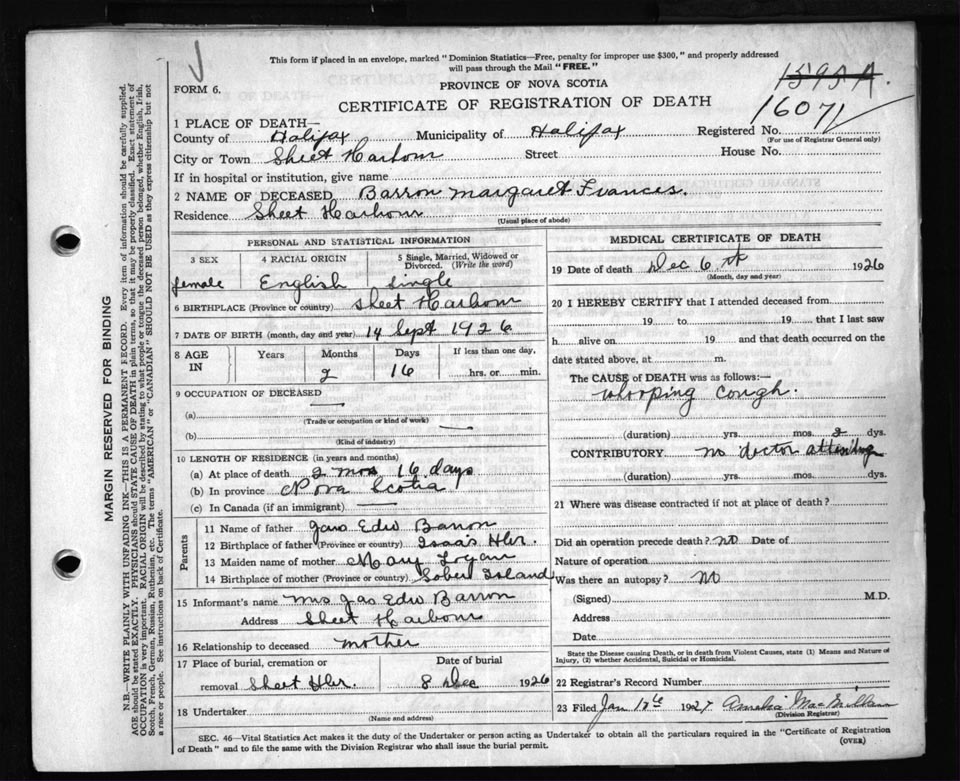 This form if placed in an envelope, marked "Dominion Statistics—Free, penalty for improper use $300," and properly addressed
will pass through the Mail "FREE."
FORM 6.
PROVINCE OF NOVA SCOTIA
1595 A.
CERTIFICATE OF REGISTRATION OF DEATH
16071
1 PLACE OF DEATH—
County of Halifax Municipality of Halifax Registered No.
(For use of Registrar General only)
City or Town Sheet Harbour Street House No.
If in hospital or institution, give name
2 NAME OF DECEASED Barron Margaret Frances.
Residence Sheet Harbour
(Usual place of abode)
PERSONAL AND STATISTICAL INFORMATION
3 SEX 4 RACIAL ORIGIN 5 Single, Married, Widowed or Divorced. (Write the word)
female English Single
6 BIRTHPLACE (Province or country) Sheet Harbour
7 DATE OF BIRTH (month, day and year) 14 Sept 1926
8 AGE IN Years Months Days If less than one day,
2 16 hrs. or min.
9 OCCUPATION OF DECEASED
(a)
(Trade or occupation or kind of work)
(b)
(Kind of industry)
10 LENGTH OF RESIDENCE (in years and months)
(a) At place of death 2 mos 16 days
(b) In province Nova Scotia
(c) In Canada (if an immigrant)
Parents
11 Name of father Jas Edw Barron
12 Birthplace of father (Province or country) Isaac's Hbr.
13 Maiden name of mother Mary Logan
14 Birthplace of mother (Province or country) Sober Island
15 Informant's name Mrs Jas Edw Barron
Address Sheet Harbour
16 Relationship to deceased mother
17 Place of burial, cremation or Date of burial
removal Sheet Hbr. 8 Dec 1926
18 Undertaker
(Name and address)
MEDICAL CERTIFICATE OF DEATH
19 Date of death Dec 6th 1926
(Month, day and year)
20 I HEREBY CERTIFY that I attended deceased from
19 to 19 that I last saw
h alive on 19 and that death occurred on the
date stated above, at m.
The CAUSE of DEATH was as follows:—
Whooping Cough.
(duration) yrs. mos. 2 dys.
CONTRIBUTORY no doctor attending
(duration) yrs. mos. dys.
21 Where was disease contracted if not at place of death?
Did an operation precede death? no Date of
Nature of operation
Was there an autopsy? no
(Signed) M.D.
Address
Date
State the Disease causing Death, or in death from Violent Causes, state (1) Means and Nature of
Injury, (2) whether Accidental, Suicidal or Homicidal.
22 Registrar's Record Number
23 Filed Jan 1927 Amelia
(Division Registrar)
SEC. 46—Vital Statistics Act makes it the duty of the Undertaker or person acting as Undertaker to obtain all the particulars required in the "Certificate of Registration
of Death" and to file the same with the Division Registrar who shall issue the burial permit.
(OVER)
MARGIN RESERVED FOR BINDING
N.B.—WRITE PLAINLY WITH UNFADING INK—THIS IS A PERMANENT RECORD. Every item of information should be carefully supplied.
AGE should be stated EXACTLY. PHYSICIANS should STATE CAUSE OF DEATH in plain terms, so that it may be properly classified. Exact statement of
OCCUPATION is very important. RACIAL ORIGIN will be described by stating to what people or tongue the deceased person belonged, whether English, Irish,
Scotch, French, German, Russian, Ruthenian, etc. The terms "AMERICAN" or "CANADIAN" SHOULD NOT BE USED as they express citizenship but not
a race or people. See instructions on back of Certificate.